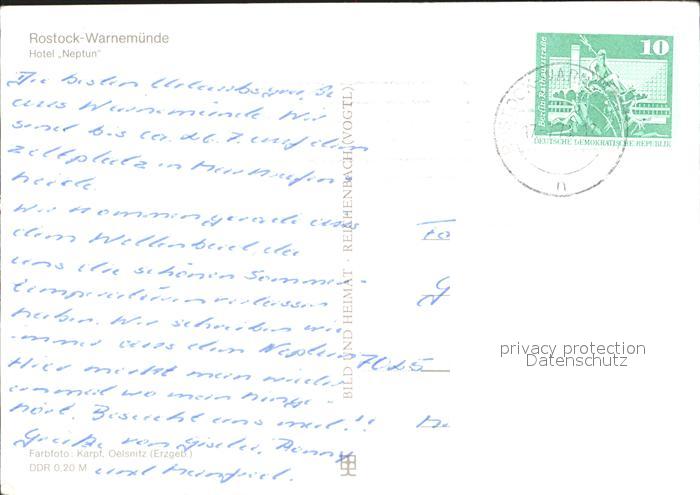 Rostock-Warnemünde
Hotel „Neptun"
Die besten Urlaubsgrüße
aus Warnemünde. Wir
sind bis ca. 26.7. auf dem
Zeltplatz in Markgrafen-
heide.
Wir kommen gerade aus
dem Wellenbad, da
uns die schönen Sommer-
temperaturen verlassen
haben. Wir schreiben wie
immer aus dem Neptun.
Hier merkt man wieder
einmal wo man hinge-
hört. Besucht uns mal!!
Grüße von Gisela,
und Manfred.
Farbfoto: Karpf, Oelsnitz (Erzgeb.)
DDR 0,20 M
BILD UND HEIMAT · REICHENBACH (VOGTL)
10
Berlin-Rathausstraße
DEUTSCHE DEMOKRATISCHE REPUBLIK
n
privacy protection
Datenschutz